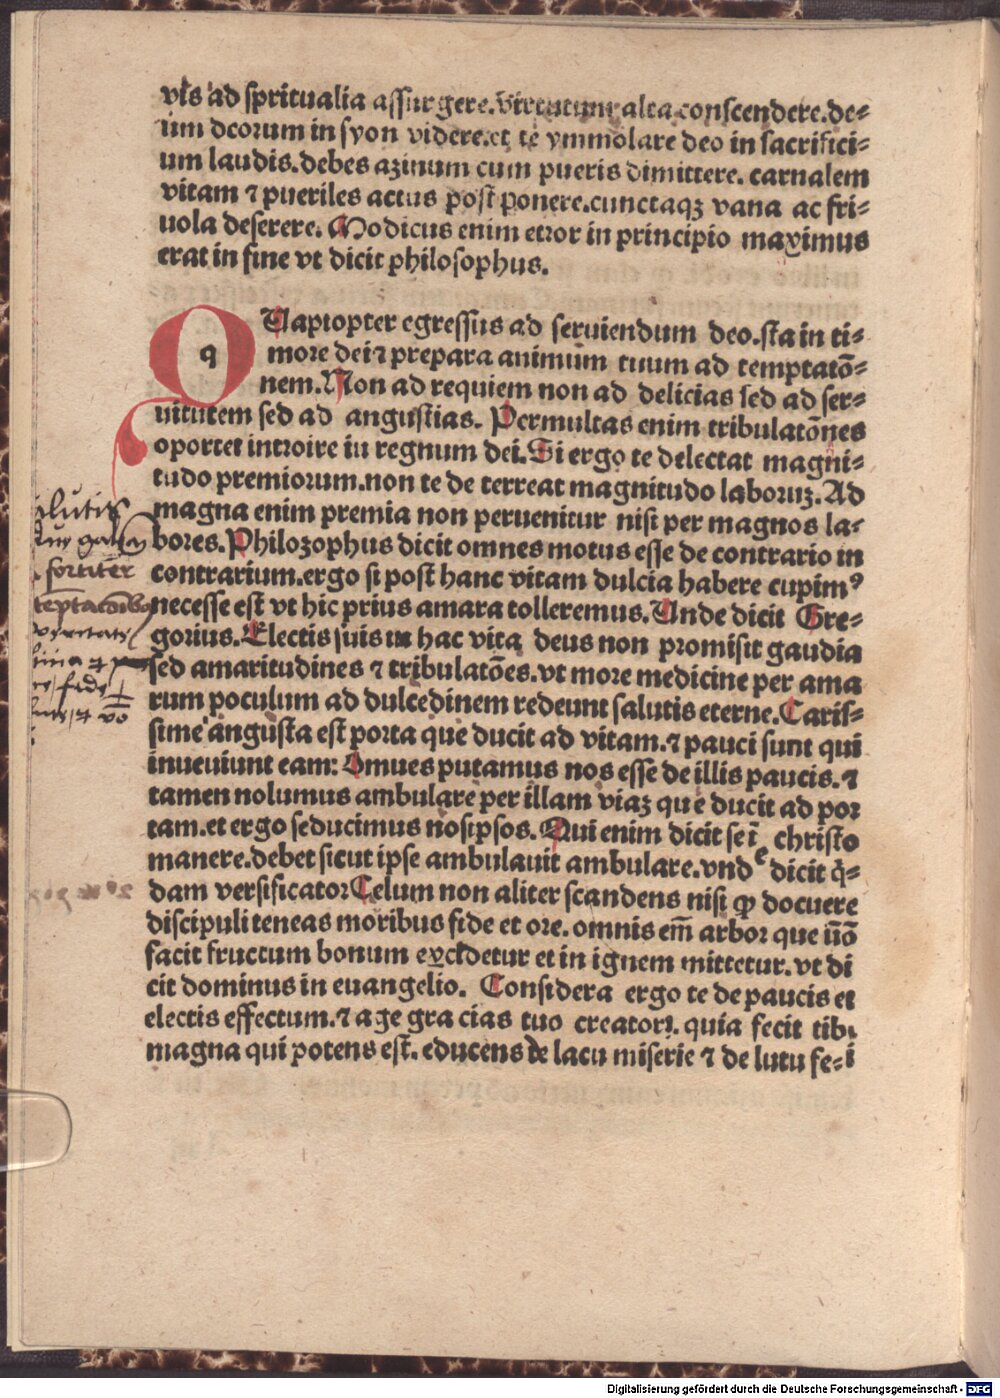 vis ad spritualia assurgere.virtutum alta conscendere.de=
um deorum in syon videre.et te ymmolare deo in sacrifici=
um laudis.debes azinum cum pueris dimittere. carnalem
vitam ⁊ pueriles actus post ponere.cunctaqꝫ vana ac fri=
uola deserere. Modicus enim error in principio maximus
erat in fine vt dicit philosophus.
q
QUapropter egressus ad seruiendum deo.sta in ti=
more dei ⁊ prepara animum tuum ad temptatō=
nem.Non ad requiem non ad delicias sed ad ser=
uitutem sed ad angustias. Permultas enim tribulatōnes
oportet introire in regnum dei.Si ergo te delectat magni=
tudo premiorum.non te de terreat magnitudo laboruꝫ. Ad
magna enim premia non peruenitur nisi per magnos la=
bores.Philozophus dicit omnes motus esse de contrario in
contrarium.ergo si post hanc vitam dulcia habere cupimꝰ
necesse est vt hic prius amara tolleremus.Unde dicit Gre=
gorius.Electis suis in hac vita deus non promisit gaudia
sed amaritudines ⁊ tribulatōes.vt more medicine per ama
rum poculum ad dulcedinem redeunt salutis eterne.Caris=
sime angusta est porta que ducit ad vitam.⁊ pauci sunt qui
inueuiunt eam: Omues putamus nos esse de illis paucis.⁊
tamen nolumus ambulare per illam viaꝫ que ducit ad por
tam.et ergo seducimus nosipsos.Qui enim dicit se ī christo
manere.debet sicut ipse ambulauit ambulare.vnde dicit q̄=
dam versificator Celum non aliter scandens nisi ꝙ docuere
discipuli teneas moribus fide et ore. omnis em̄ arbor que nō
facit fructum bonum excidetur et in ignem mittetur.vt di
cit dominus in euangelio. Considera ergo te de paucis et
electis effectum.⁊ age gra cias tuo creatori. quia fecit tibi
magna qui potens est. educens de lacu miserie ⁊ de lutu fe=i
fortiter
Digitalisierung gefördert durch die Deutsche Forschungsgemeinschaft - DFG